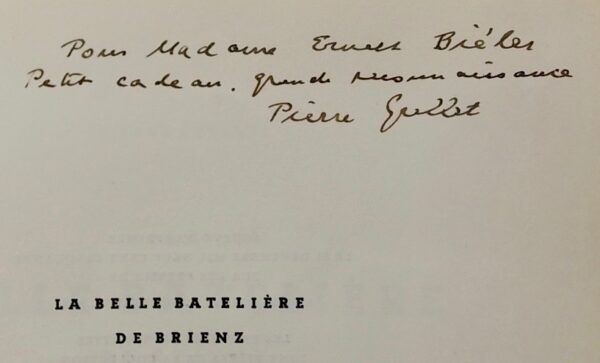 Pour Madame Ernest Biéler
Petit cadeau, grande reconnaissance
Pierre Grellet
LA BELLE BATELIÈRE
DE BRIENZ